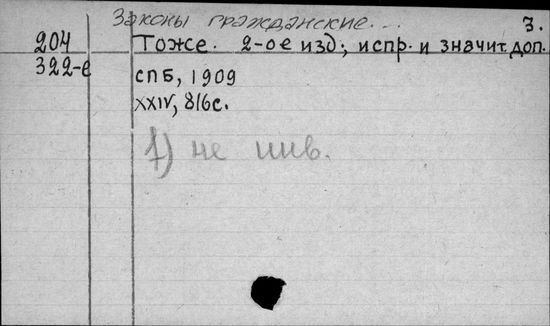 Законы гражданские... 3.
204 Тоже. 2-ое изд., испр. и значит доп.
322-е СПБ, 1909
XXIV, 816с.
1) не инв.